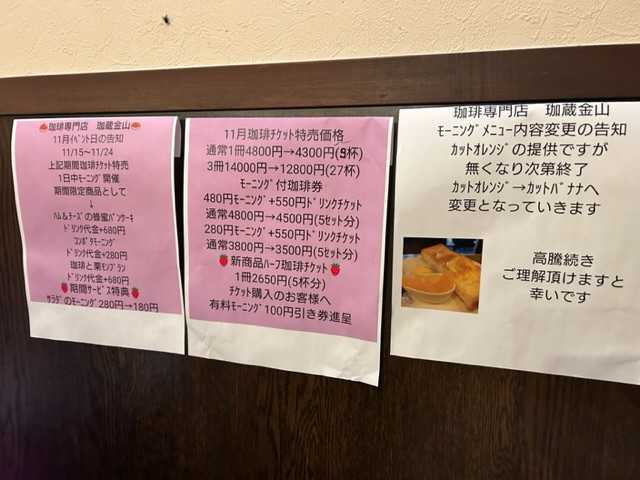 珈琲専門店 珈蔵金山
11月ｲﾍﾞﾝﾄ日の告知
11/15～11/24
上記期間珈琲ﾁｹｯﾄ特売
1日中ﾓｰﾆﾝｸﾞ開催
期間限定商品として
↓
ﾊﾑ&ﾁｰｽﾞの蜂蜜ﾊﾟﾝｹｰｷ
ﾄﾞﾘﾝｸ代金+680円
ｺﾝﾎﾟﾀﾓｰﾆﾝｸﾞ
ﾄﾞﾘﾝｸ代金+280円
珈琲と栗ﾓﾝﾌﾞﾗﾝ
ﾄﾞﾘﾝｸ代金+680円
期間ｻｰﾋﾞｽ特典
ｻﾗﾀﾞのﾓｰﾆﾝｸﾞ280円→180円
11月珈琲ﾁｹｯﾄ特売価格
通常1冊4800円→4300円(9杯)
3冊14000円→12800円(27杯)
ﾓｰﾆﾝｸﾞ付珈琲券
480円ﾓｰﾆﾝｸﾞ+550円ﾄﾞﾘﾝｸﾁｹｯﾄ
通常4800円→4500円(5ｾｯﾄ分)
280円ﾓｰﾆﾝｸﾞ+550円ﾄﾞﾘﾝｸﾁｹｯﾄ
通常3800円→3500円(5ｾｯﾄ分)
新商品ﾊｰﾌ珈琲ﾁｹｯﾄ
1冊2650円(5杯分)
ﾁｹｯﾄ購入のお客様へ
有料ﾓｰﾆﾝｸﾞ100円引き券進呈
珈琲専門店 珈蔵金山
ﾓｰﾆﾝｸﾞﾒﾆｭｰ内容変更の告知
ｶｯﾄｵﾚﾝｼﾞの提供ですが
無くなり次第終了
ｶｯﾄｵﾚﾝｼﾞ→ｶｯﾄﾊﾞﾅﾅへ
変更となっていきます
高騰続き
ご理解頂けますと
幸いです